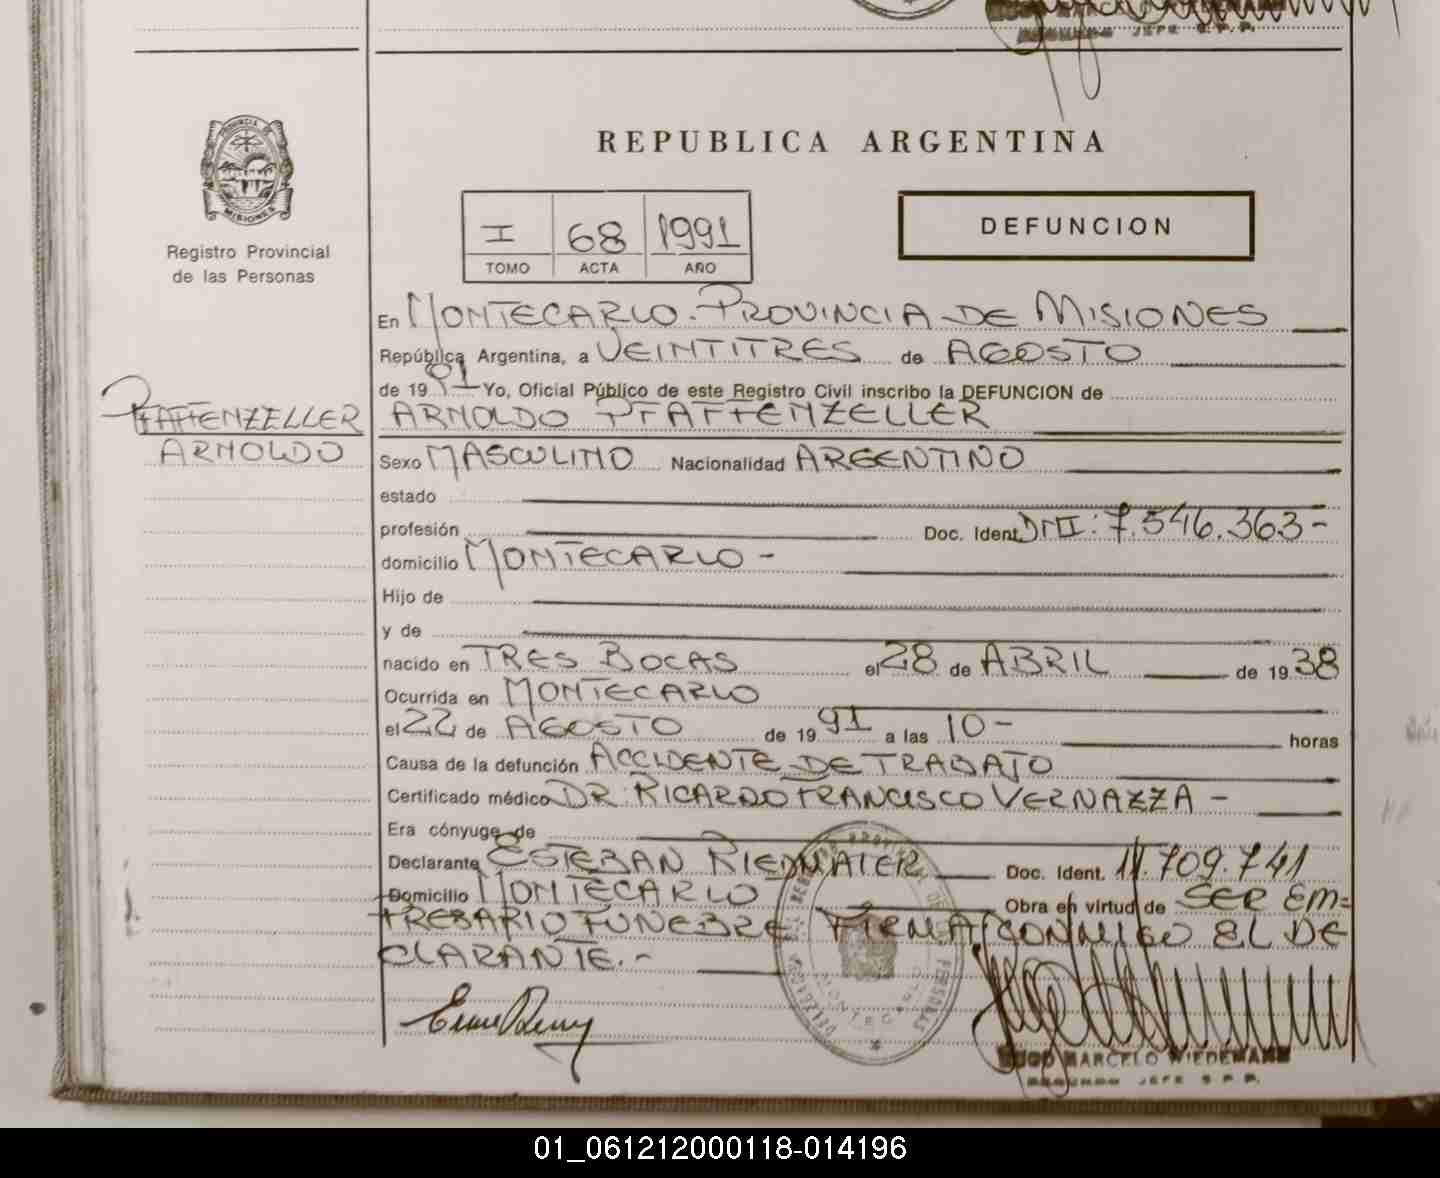 REPUBLICA ARGENTINA
PROVINCIA
MISIONES
Registro Provincial
de las Personas
I 68 1991
TOMO ACTA AÑO
DEFUNCION
En MONTECARLO. PROVINCIA DE MISIONES
República Argentina, a VEINTITRES de AGOSTO
de 1991 Yo, Oficial Público de este Registro Civil inscribo la DEFUNCION de
PFAFFENZELLER
ARNOLDO
ARNOLDO PFAFFENZELLER
Sexo MASCULINO Nacionalidad ARGENTINO
estado
profesión Doc. Ident. DNI: 7.546.363-
domicilio MONTECARLO -
Hijo de
y de
nacido en TRES BOCAS el 28 de ABRIL de 1938
Ocurrida en MONTECARLO
el 22 de AGOSTO de 1991 a las 10- horas
Causa de la defunción ACCIDENTE DE TRABAJO
Certificado médico DR. RICARDO FRANCISCO VERNAZZA -
Era cónyuge de
Declarante ESTEBAN RIEDMAIER Doc. Ident. 11.709.741
Domicilio MONTECARLO Obra en virtud de SER EM=
PRESARIO FUNEBRE FIRMA CONMIGO EL DE
CLARANTE.-
HUGO MARCELO WIEDEMANN
SEGUNDO JEFE
01_061212000118-014196